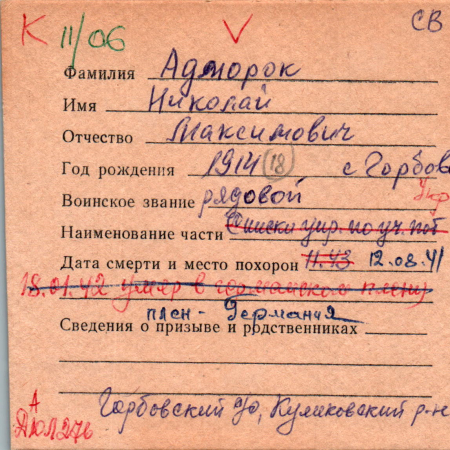 К 11/06 V СВ
Фамилия Адморок
Имя Николай
Отчество Максимович
Год рождения 1914 (18) с. Горбов
Воинское звание рядовой Укр
Наименование части Списки упр. по уч. пот
Дата смерти и место похорон 11.43 12.08.41
18.01.42 умер в германском плену
плен - Германия
Сведения о призыве и родственниках
Горбовский с/о, Куликовский р-н
А